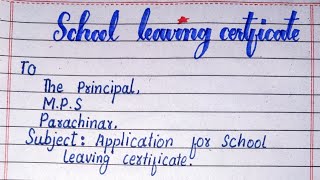 School leaving certficate
To
The Principal,
M.P.S
Parachinar.
Subject: Application for School
leaving certificate.